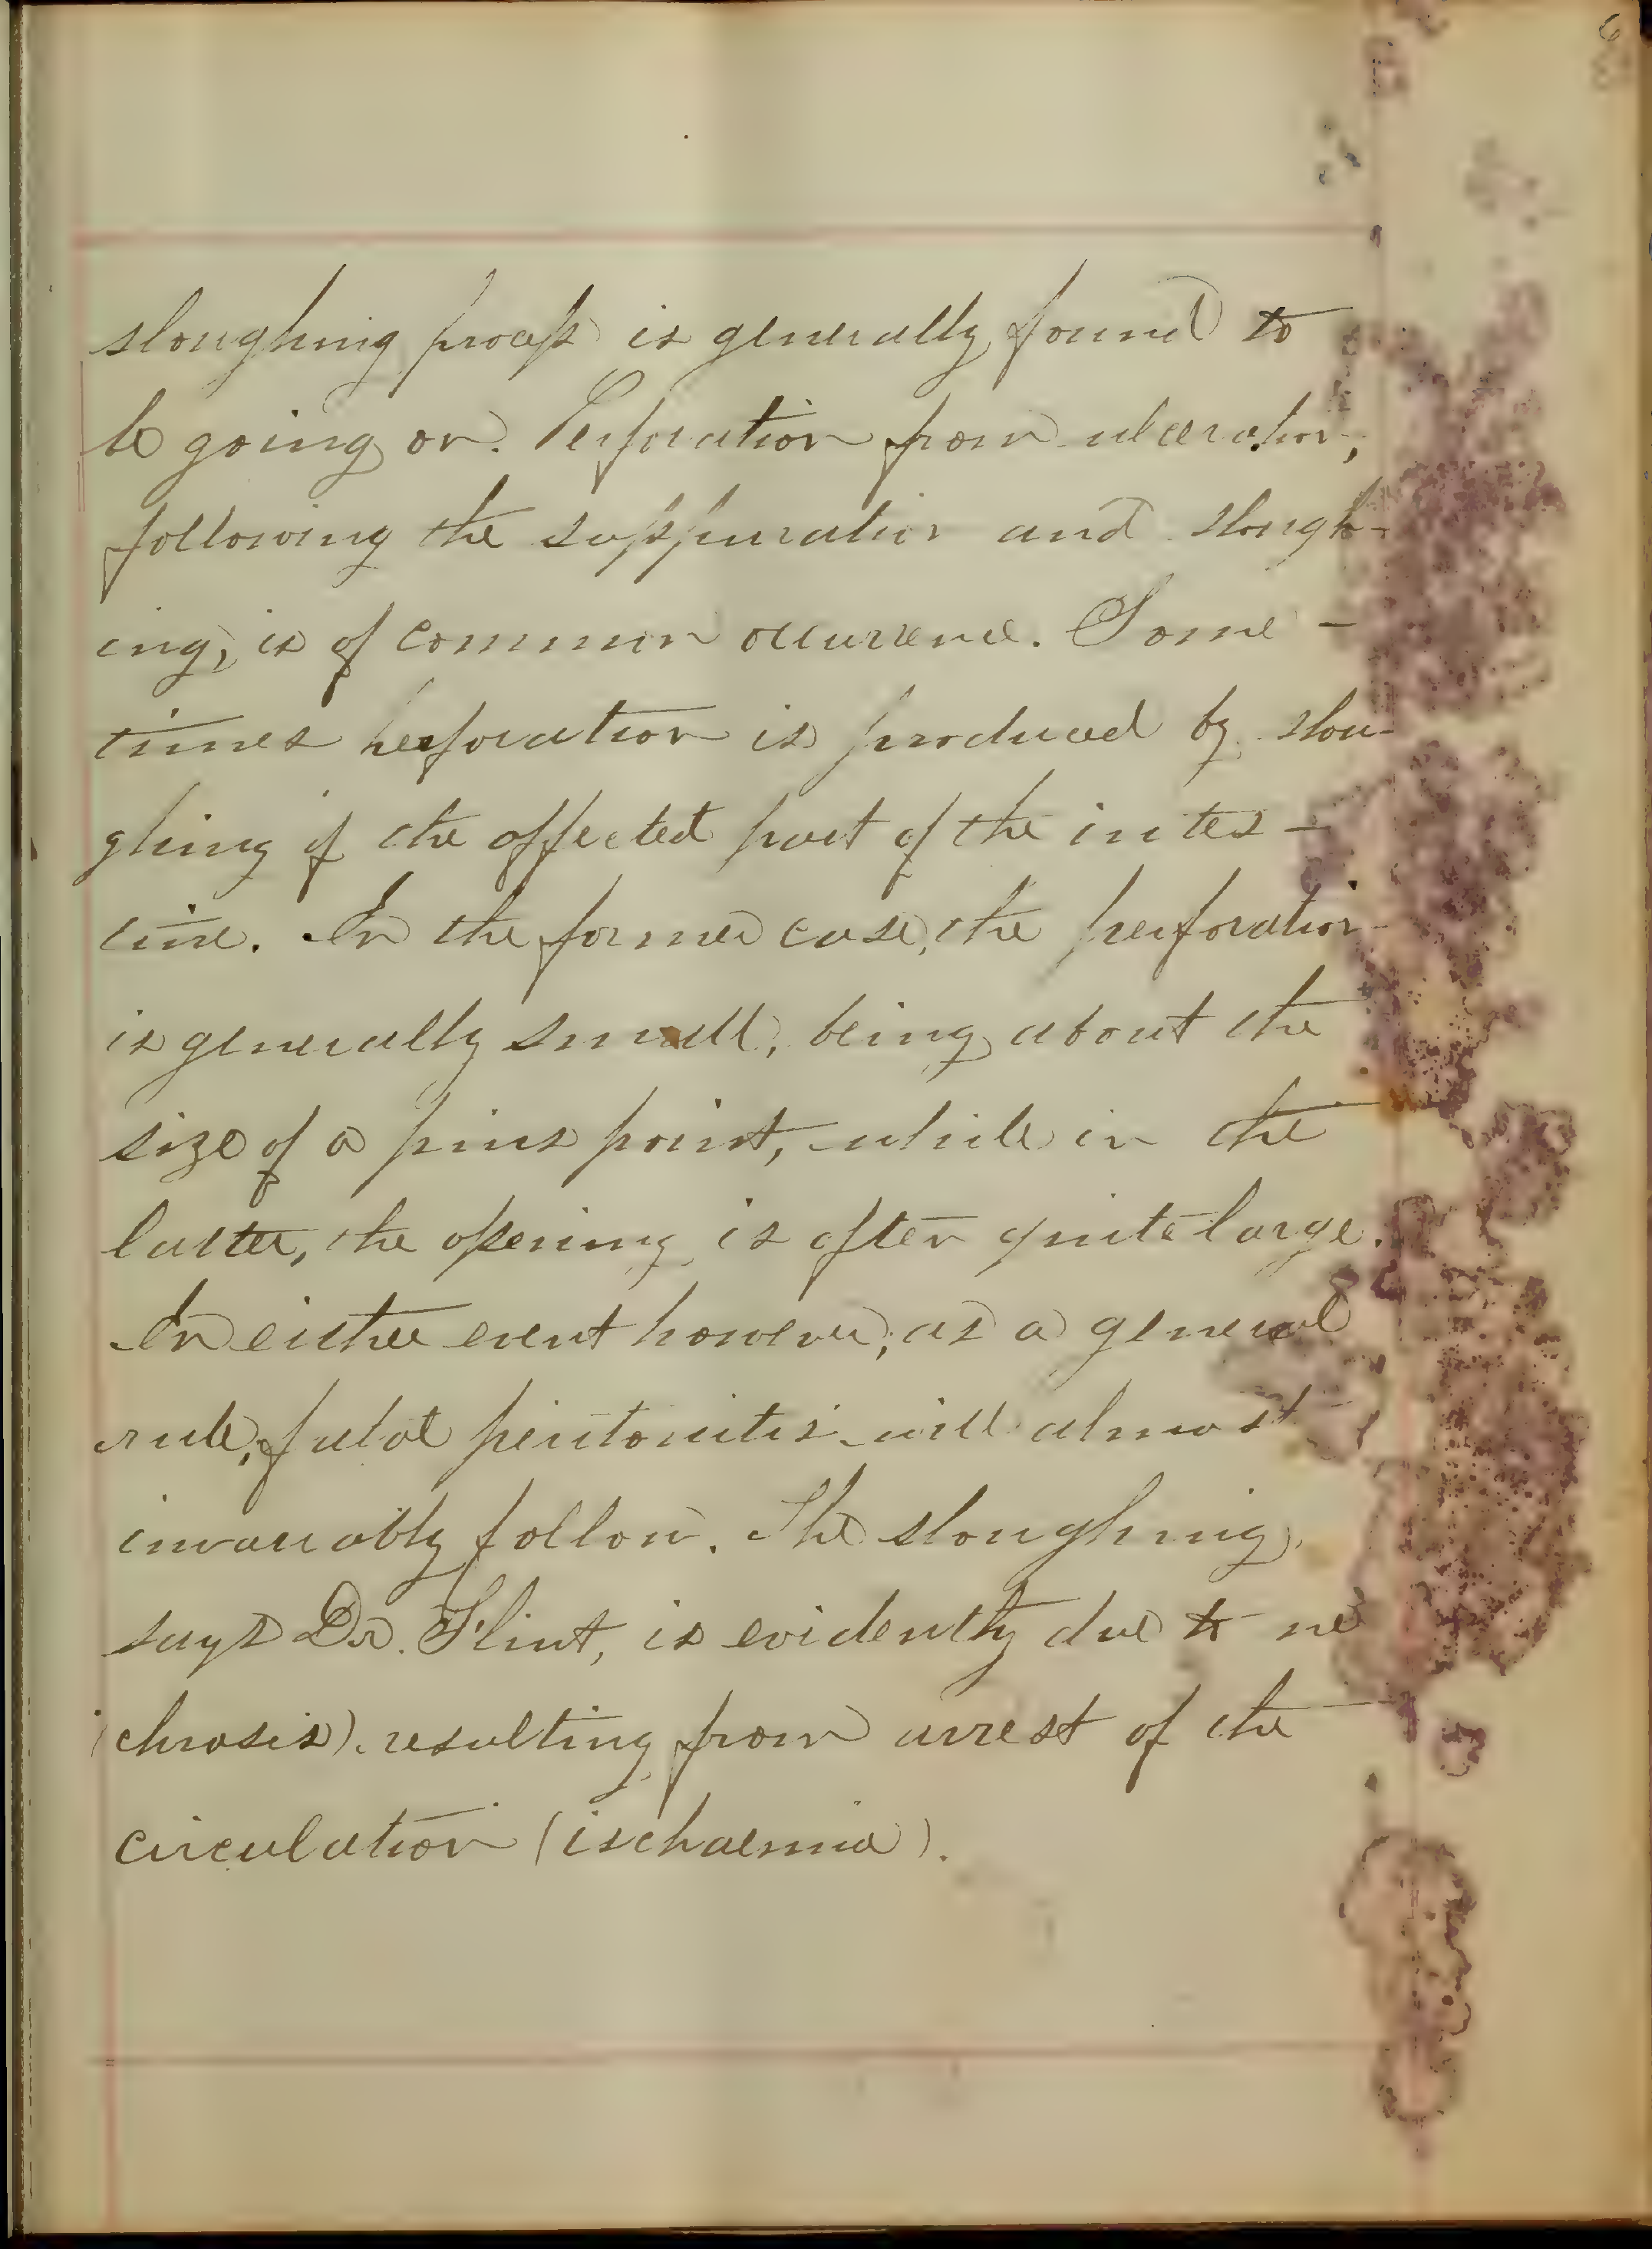 6
sloughing process is generally found to
be going on. Perforation from ulceration,
following the suppuration and slough-
ing, is of common occurrence. Some-
times perforation is produced by slou-
ghing of the affected part of the intes-
tine. In the former case, the perforation
is generally small, being about the
size of a pins point, while in the
latter, the opening is often quite large.
In either event however, as a general
rule, fatal peritonitis will almost
invariably follow. The sloughing,
says Dr. Flint, is evidently due to ne
chrosis, resulting from arrest of the
circulation (ischaemia).